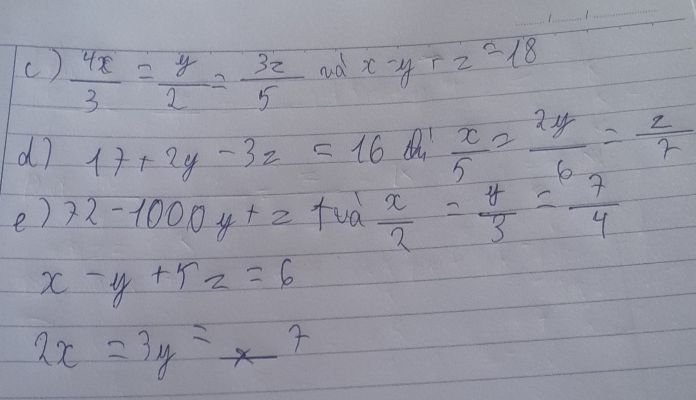 c) 4x/3 = y/2 = 3z/5 và x - y + z = 18
d) 17 + 2y - 3z = 16 x/5 = 2y/6 = z/7
e) 72 - 1000y + z và x/2 = y/3 = 7/4
x - y + 5z = 6
2x = 3y = 7